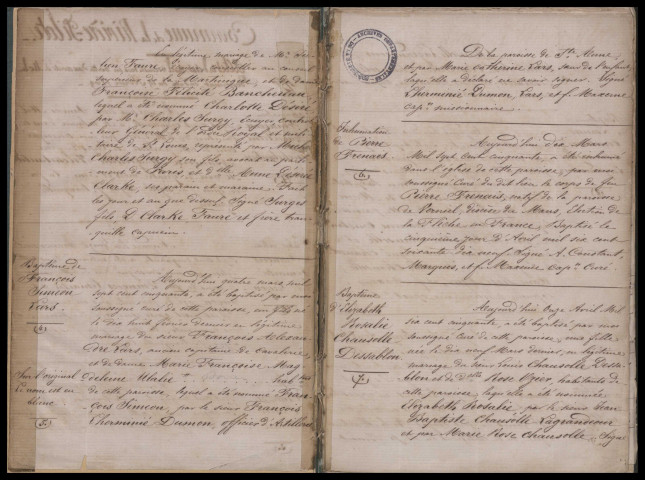 légitime mariage de Mr
Faure conseiller au conseil
supérieur de la Martinique, et de dame
Françoise Félicité Banchereau,
lequel a été nommé Charlotte Désiré
par Mr Charles Surgy, Ecuyer, contrô
leur Général de
de St Louis, représenté par
Charles Surgy son fils, avocat au parle
ment de Paris et dlle Anne Désirée
Clarke, ses parain et maraine
les jour et an que dessus. Signé Surgy
fils, D. Clarke, Faure et frère Tran
quille capucin.
Baptême de
François
Siméon
Lers.
(4)
Aujourd'hui quatre mars mil
sept cent cinquante, a été baptisé par moi
soussigné curé de cette paroisse, un fils né
le dix huit février dernier en légitime
mariage du sieur François
de Lers, ancien capitaine de cavalerie
et de dame Marie Françoise Mag
deleine habans
de cette paroisse, lequel a été nommé Fran
çois Siméon, par le sieur François
Lherminié Dumon, officier d'Artillerie
Sur l'original
le nom est en
blanc.
(5)
De la paroisse de Ste Anne
et par Marie Catherine Lars, sœur de l'enfant
laquelle a déclaré ne savoir signer. Signé
Lherminié Dumon, Lars, et f. Maxence
capn missionnaire.
Inhumation
de Pierre
Frenais
(6)
Aujourd'hui dix Mars
Mil sept cent cinquante, a été inhumé
dans l'église de cette paroisse, par moi
soussigné Curé du dit lieu, le corps de feu
Pierre Frenais, natif de la paroisse
de diocèse du Mans, Election de
La Flèche, en France, Baptisé le
cinquième jour d'Avril mil six cent
soixante dix neuf. Signé A. Constant,
Marques, et f. Maxence cap. Curé
Baptême
d'Elizabeth
Rosalie
Chauvolle
Dessablon
(7)
Aujourd'hui Onze Avril Mil
six cent cinquante, a été baptisé par moi
soussigné Curé de cette paroisse, une fille
née le dix neuf Mars dernier, en légitime
mariage du sieur Louis Chauvolle Dessa
blon et de Dlle Rose habitants de
cette paroisse, laquelle a été nommée
Elizabeth Rosalie, par le sieur Jean
Baptiste Chauvolle Lagrandcour
et par Marie Rose Chauvolle, Signé